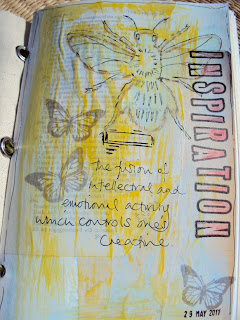 INSPIRATION
the fusion of
intellectual and
emotional activity
which controls ones
Creative
29 MAY 2011